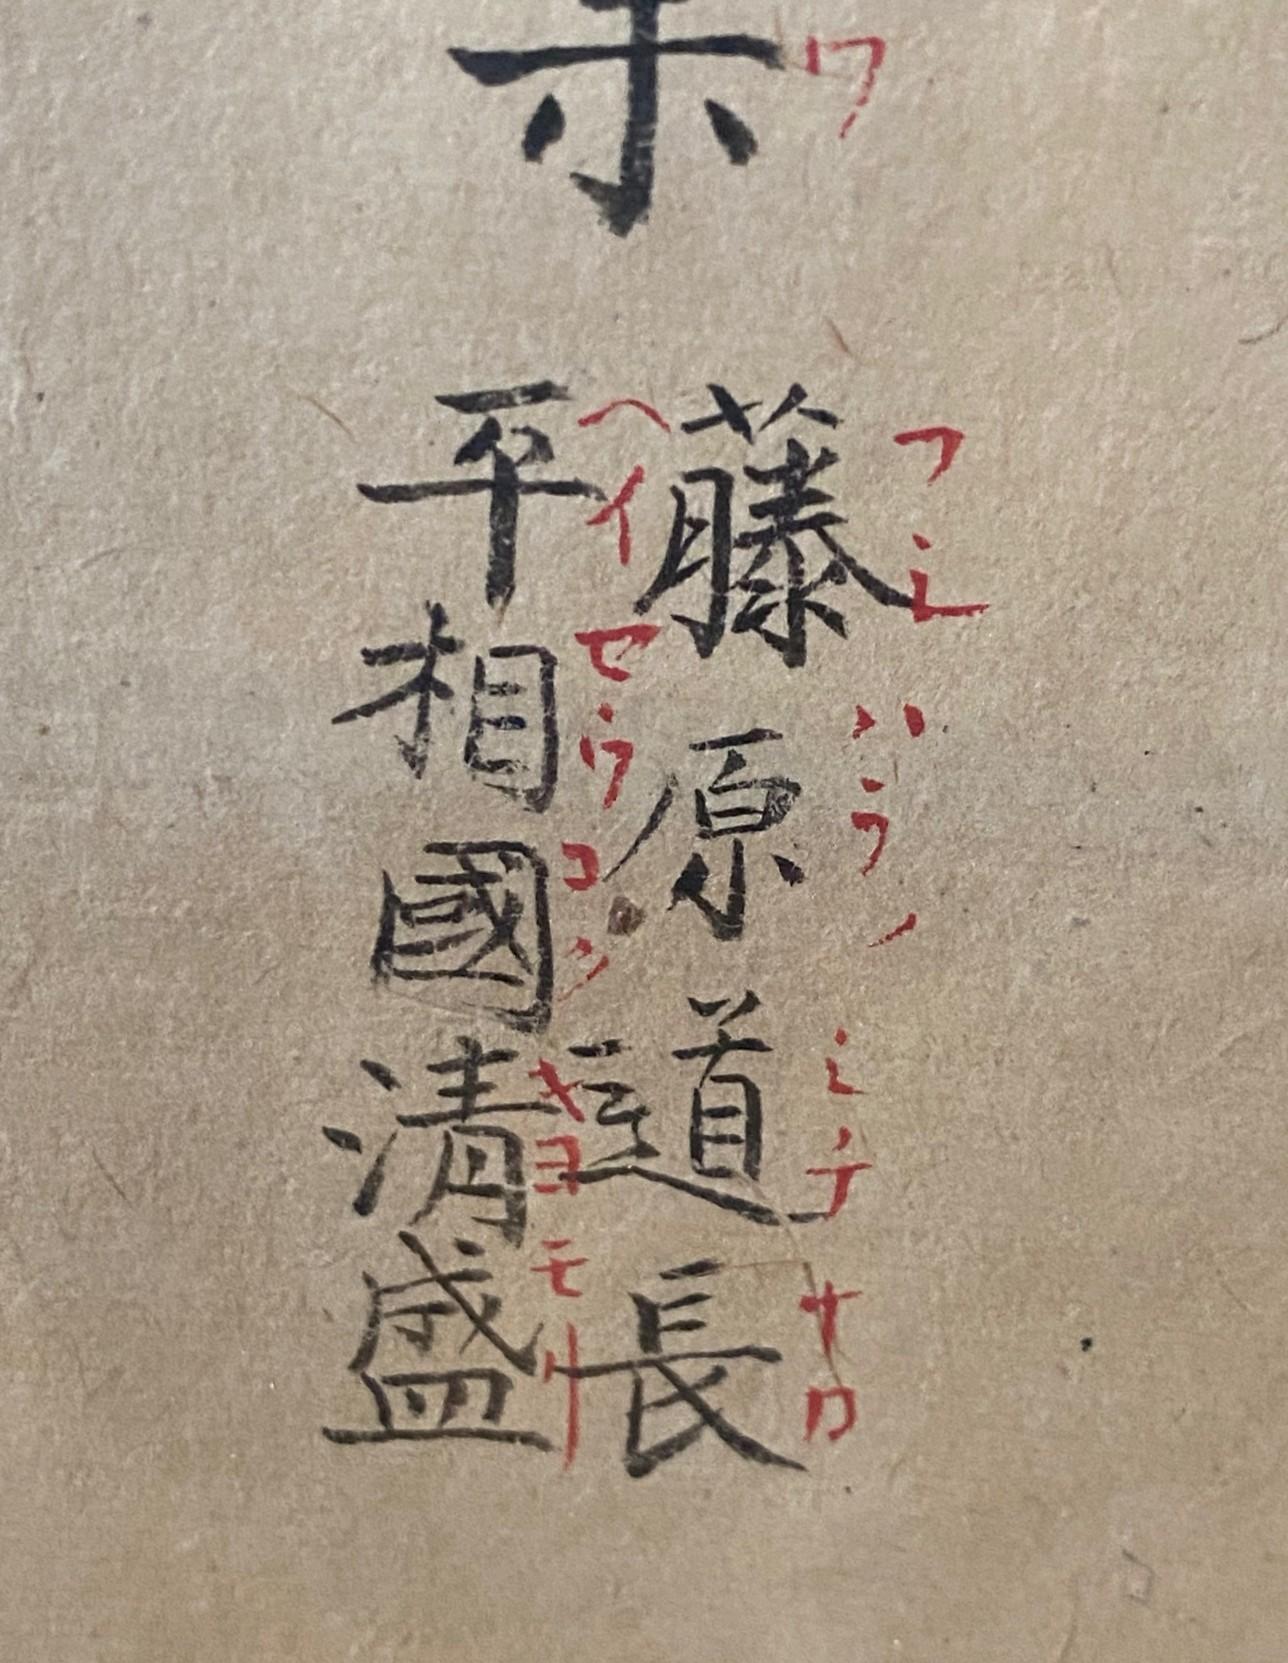 ワ
藤原道長
フシハラノミチナカ
平相國清盛
ヘイセウコクキヨモリ